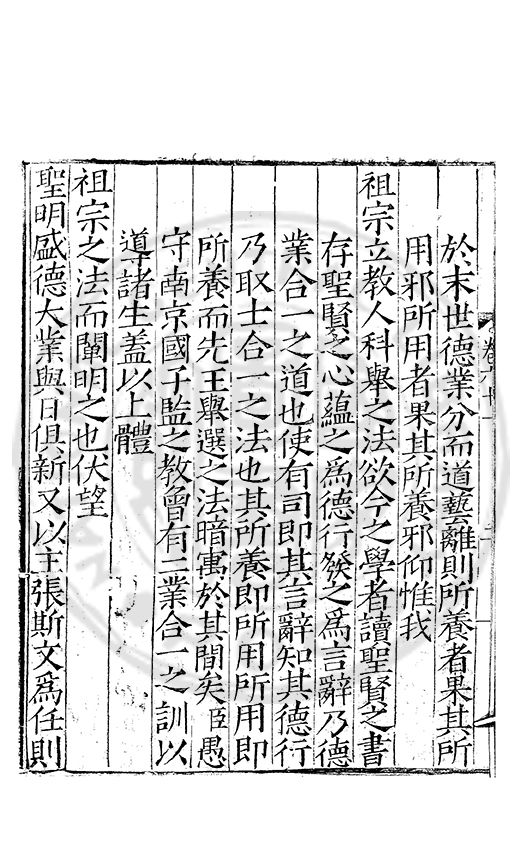 於末世德業分而道藝離則所養者果其所
用邪所用者果其所養邪仰惟我
祖宗立教人科舉之法欲今之學者讀聖賢之書
存聖賢之心蘊之為德行發之為言辭乃德
業合一之道也使有司即其言辭知其德行
乃取士合一之法也其所養即所用所用即
所養而先王舉選之法暗寓於其間矣臣愚
守南京國子監之教曾有二業合一之訓以
導諸生蓋以上體
祖宗之法而闡明之也伏望
聖明盛德大業與日俱新又以主張斯文為任則